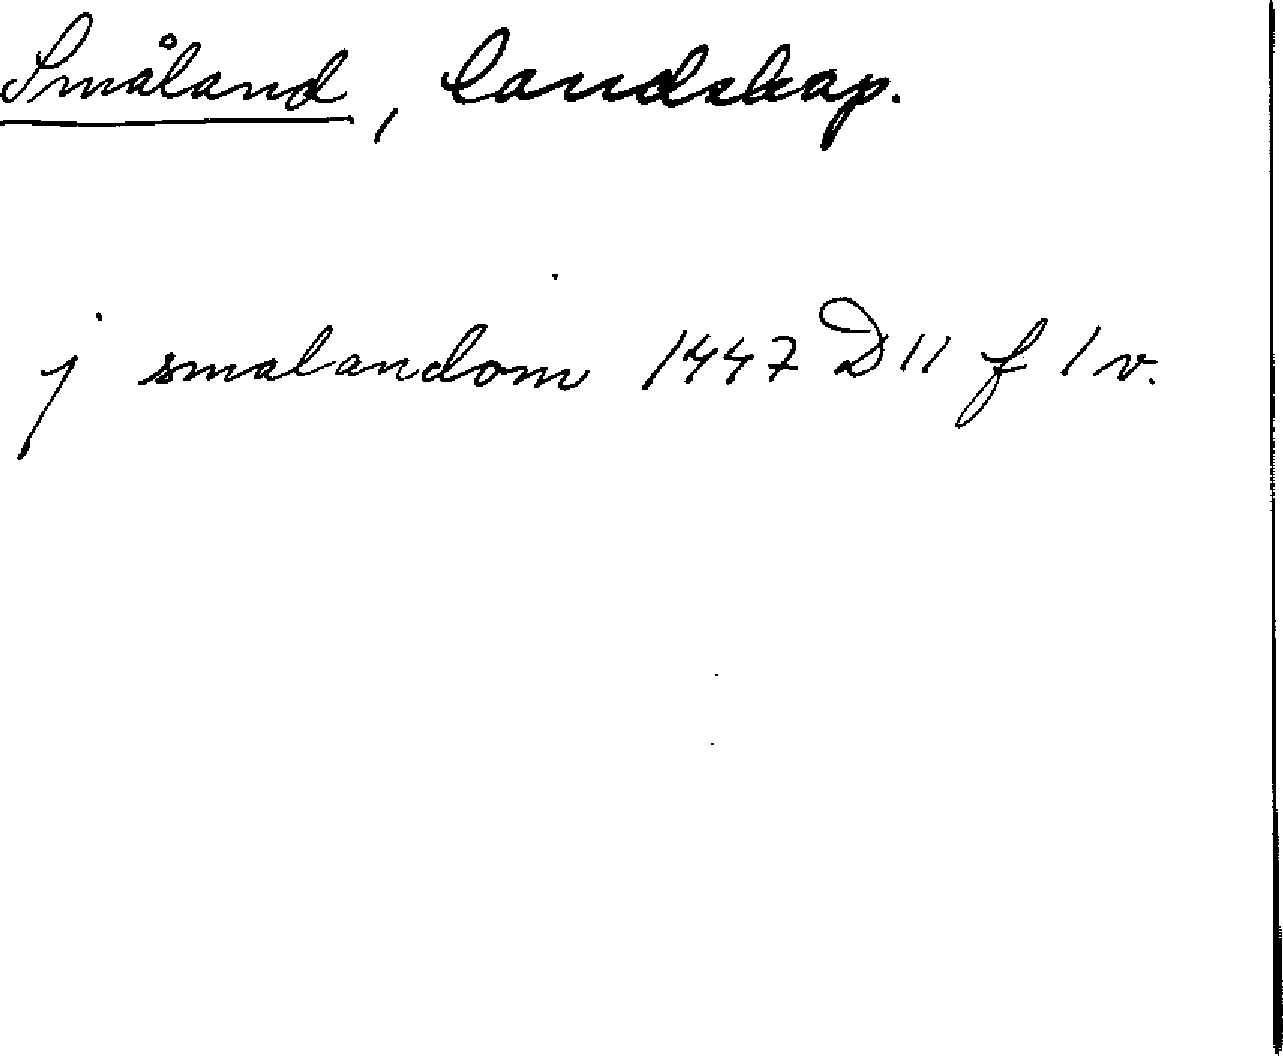 Småland, landskap.
j smalandom 1447 D 11 f 1 v.